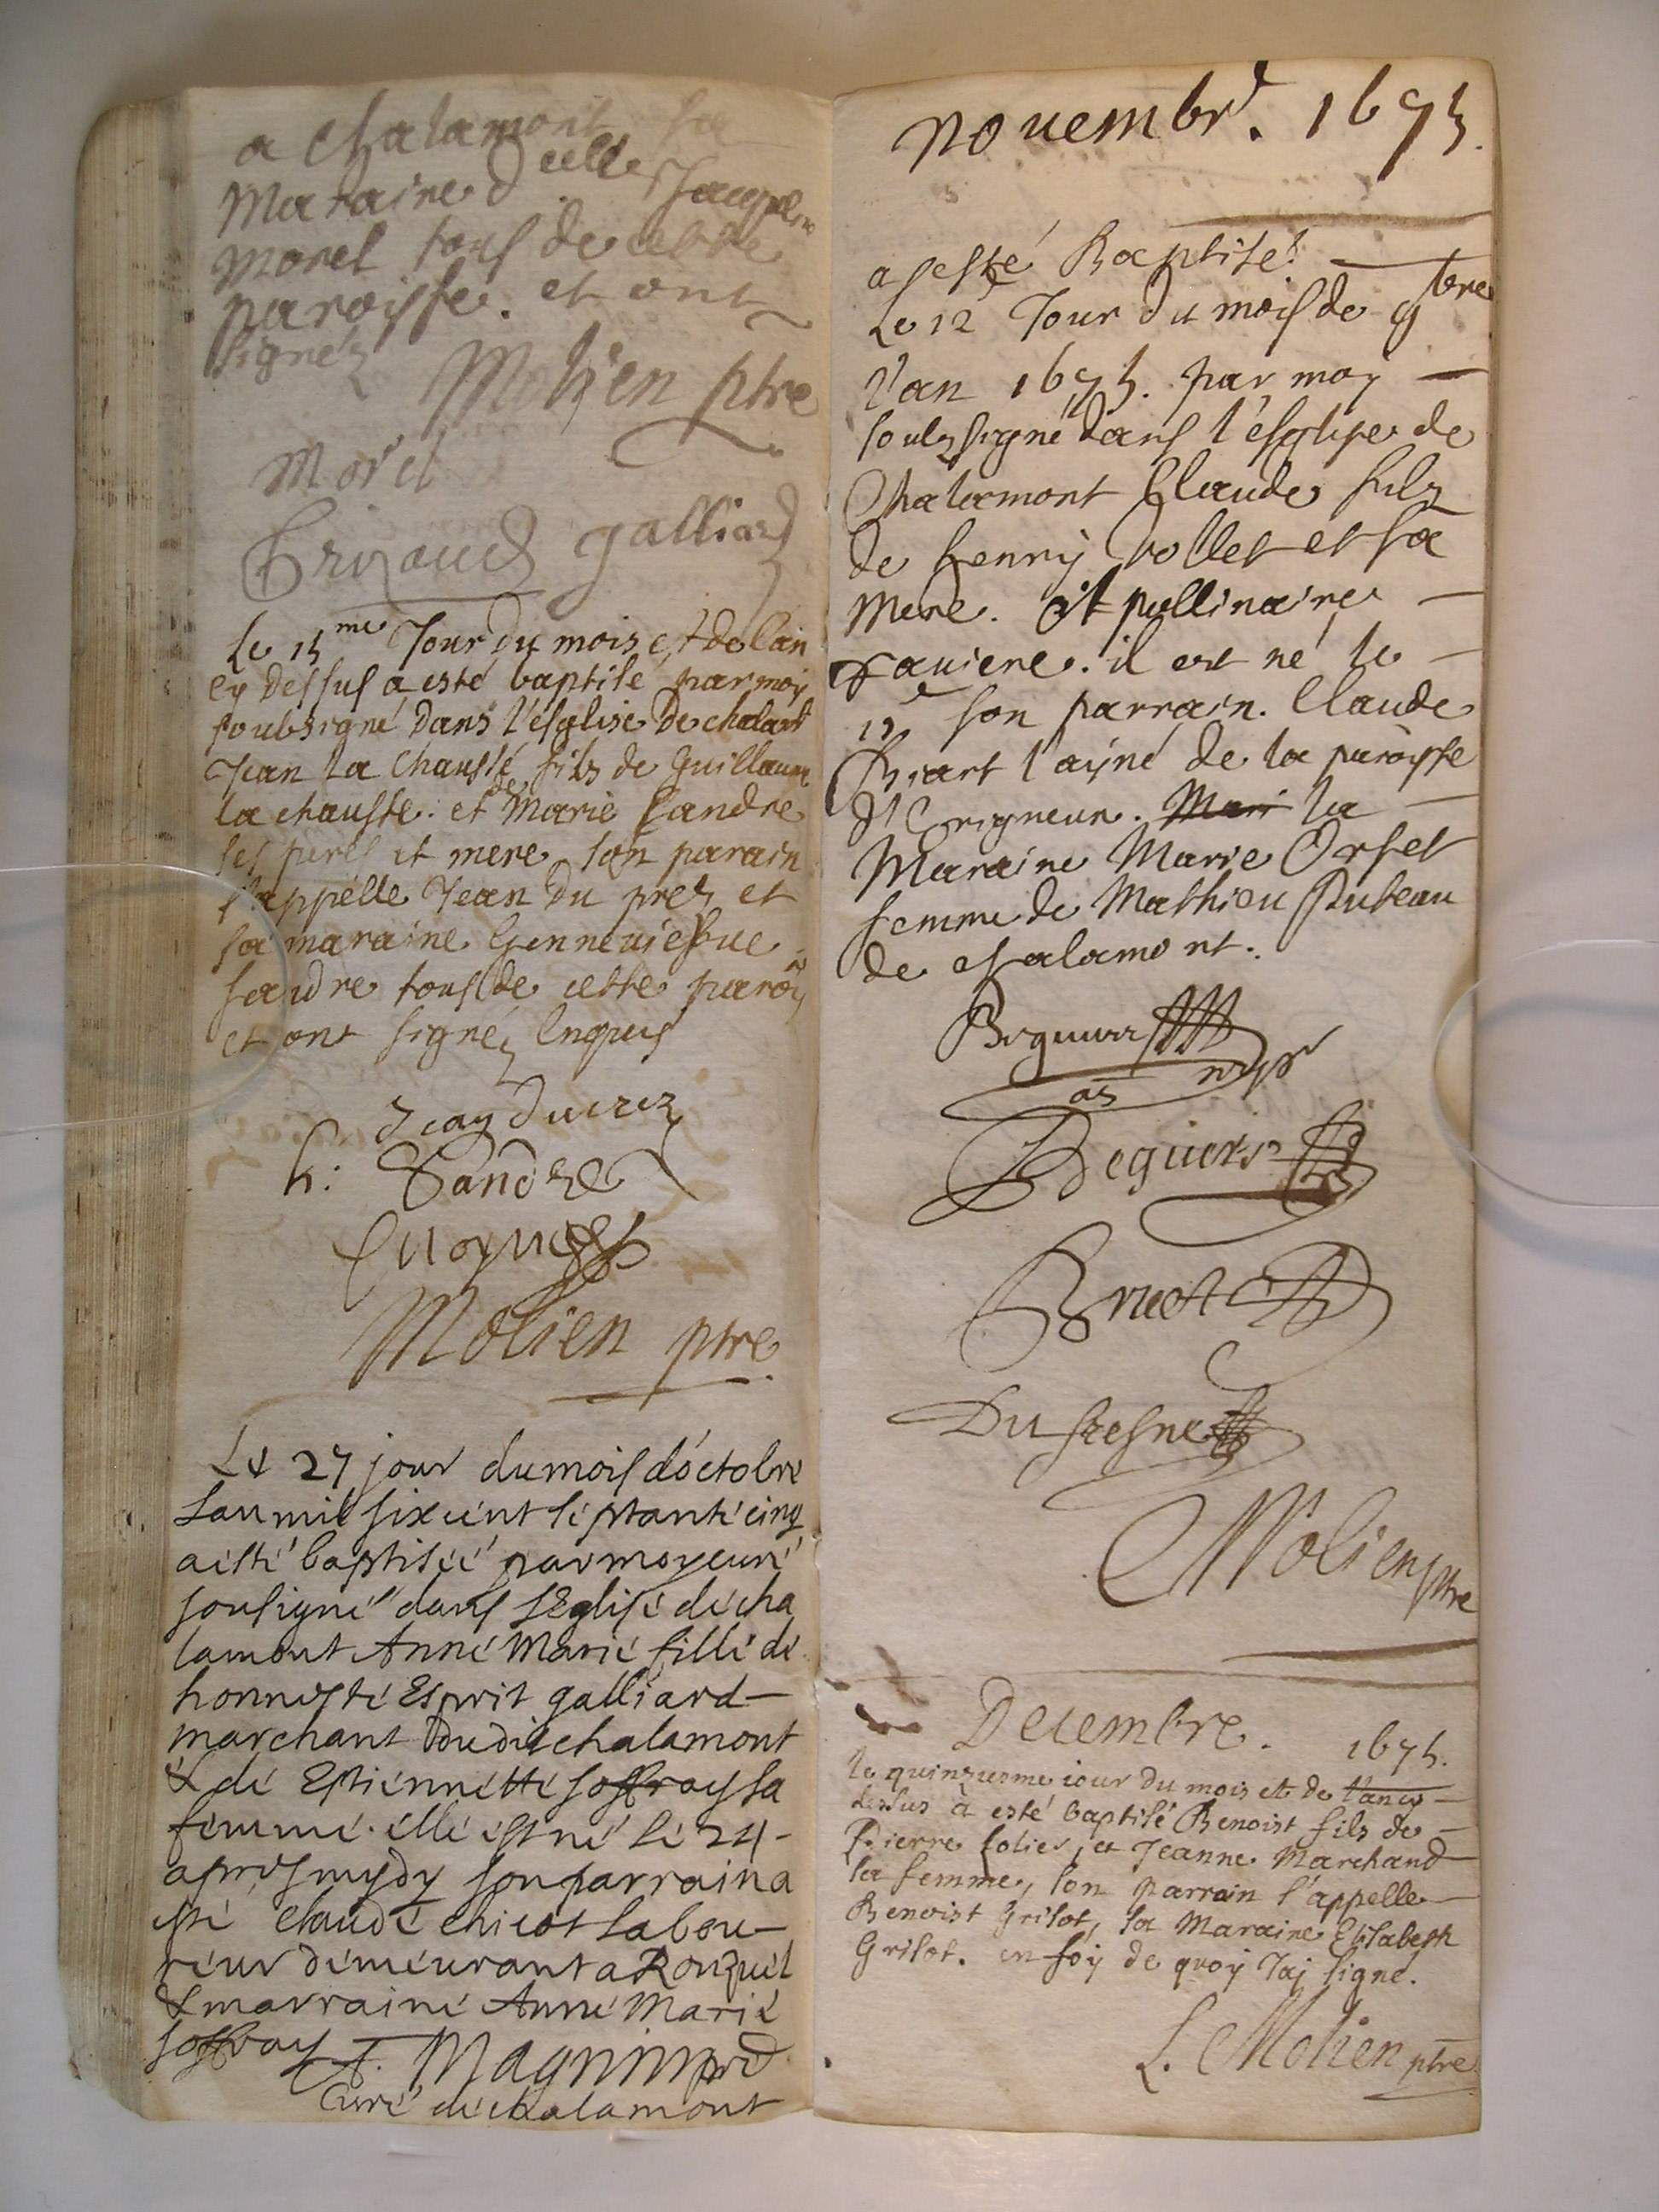 a chalamont sa
Maraine d elle Jacqueline
Morel tous de cette
paroisse. et ont
signéz
Molien ptre
Morel
galliard
Le 15me Jour du mois et de lan
cy dessus a esté baptisé par moy
soubsigné dans l'esglise De chalamt
Jean La Chausse fils de Guillaume
la chausse. et de Marie Sandre
ses peres et mere son parain
s'appelle Jean Du prez et
sa maraine Genneviefve
sandre tous de cette paroiss
et ont signéz enquis
Jean du crez
h: Sandre
Molien ptre
Le 27 jour du mois d'octobre
Lan mil six cent septante cinq
a esté baptiséé par moy curé
sousigné dans L'Eglise de cha
lamont Anne Marie fille de
honneste Esprit galliard
marchant dudit chalamont
& de Estiennette soffray sa
femme. elle est né le 24
apres mydy son parrain a
esté claude chicot labou-
reur demeurant a Ronzuel
& marraine Anne Marie
soffray
Magnin
Curé de chalamont
Novembre. 1675.
a esté Baptisé
Le 12 Jour du mois de 9bre
l'an 1675. par moy
soubzsigné dans l'esglise de
Chalamont Claude filz
de henry vollet et sa
Mere.
il est né le
son parrain. Claude
l'ayné de la paroysse
la
Maraine Marie Orset
femme de Mathieu Buteau
de chalamont.
Dufresne
Molien ptre
Decembre. 1675.
le quinziesme iour du mois et de l'an cy
dessus à esté baptisé Benoist fils de
Pierre folier, et Jeanne Marchand
sa femme, son parrain s'appelle
Benoist Grilot, sa Maraine Elisabeth
Grilot. en foy de quoy J'aj signé.
L. Molien ptre